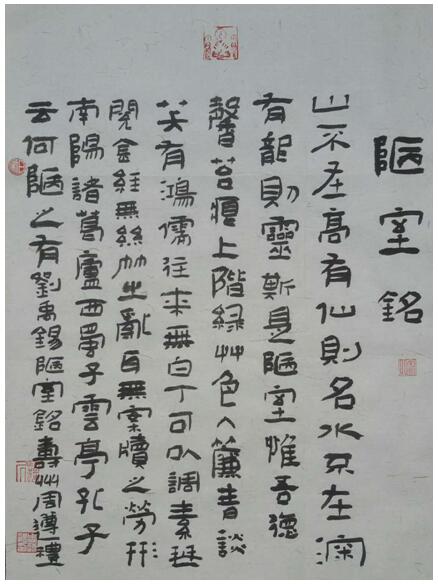 陋室銘
山不在高有仙則名水不在深
有龍則靈斯是陋室惟吾德
馨苔痕上階綠艸色入簾青談
笑有鴻儒往來無白丁可以調素琴
閱金經無絲竹之亂耳無案牘之勞形
南陽諸葛廬西蜀子雲亭孔子
云何陋之有劉禹錫陋室銘壽州周遵禮